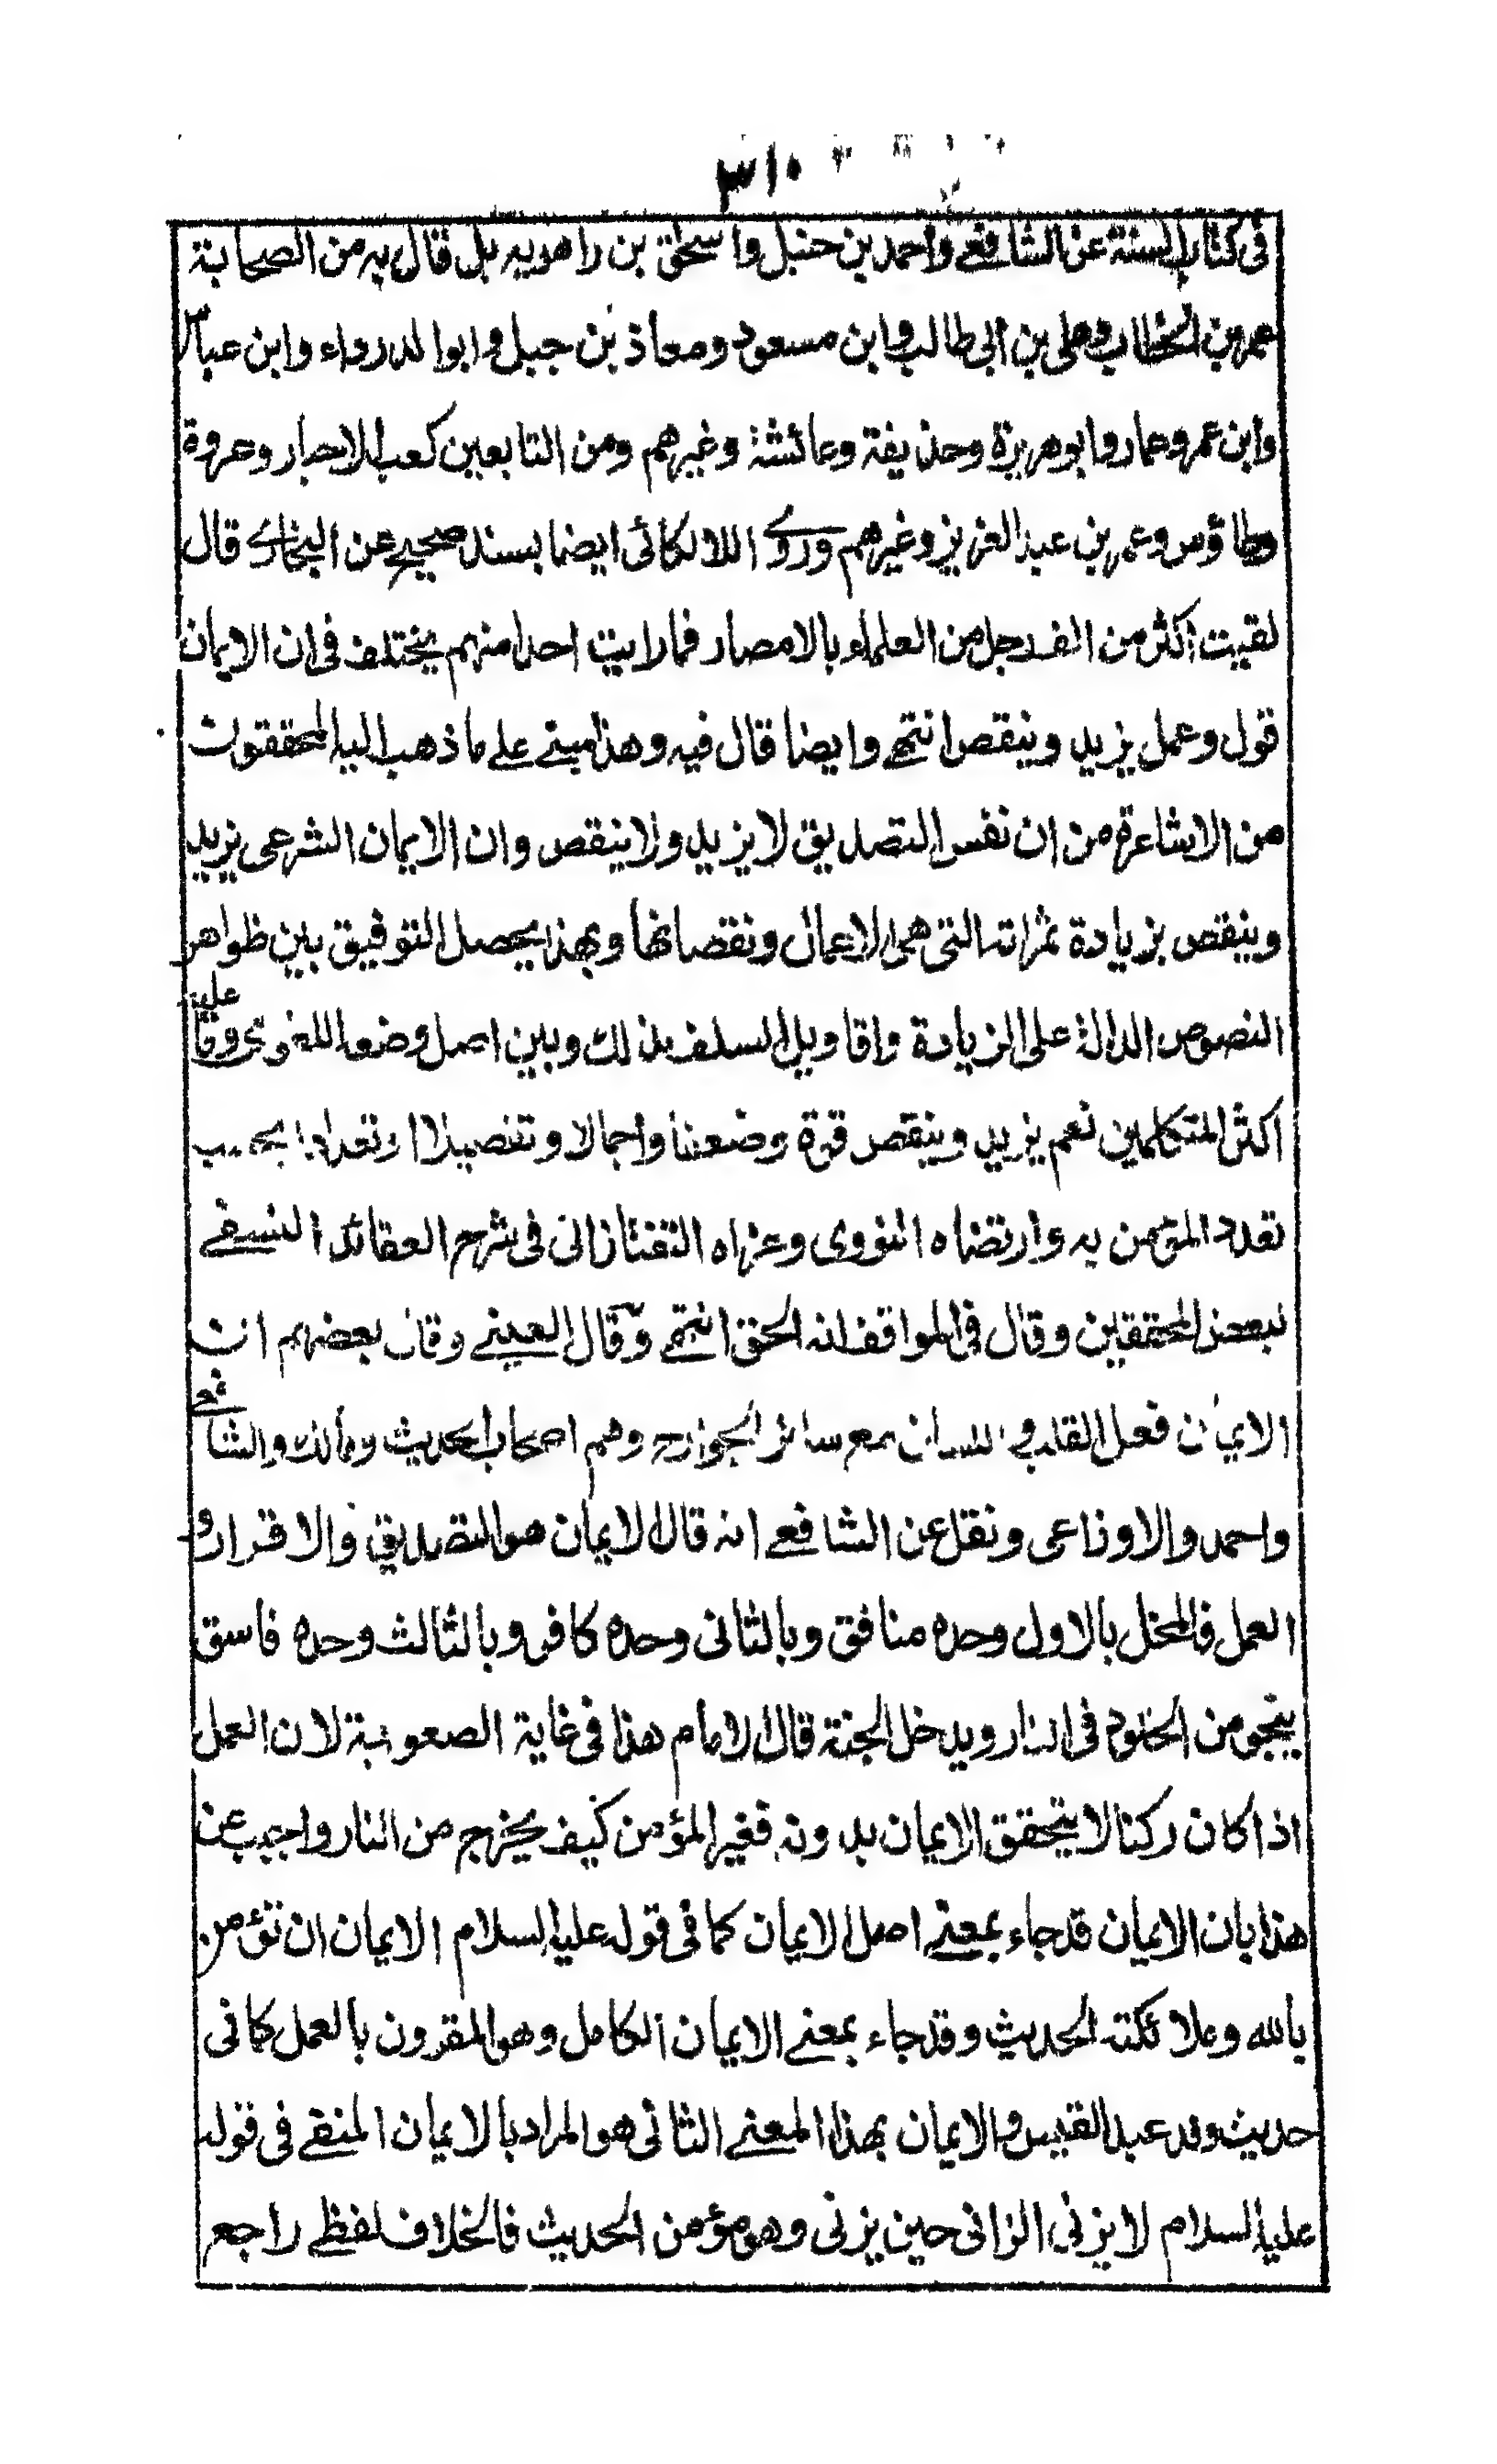 ٣١٠
فى كتاب السنة عن الشافعے واحمد بن حنبل واسحٰق بن راهويه بل قال به من الصحابة
عمر بن الخطاب وعلى بن ابى طالب وابن مسعود ومعاذ بن جبل وابو الدرداء وابن عباس
وابن عمر وعمار وابو هريرة وحذيفة وعائشة وغيرهم ومن التابعين كعب الاحبار وعروة
وطاؤس وعمر بن عبد العزيز وغيرهم وروے اللالكائى ايضا بسند صحيح عن البخارے قال
لقيت اكثر من الف رجل من العلماء بالامصار فما رايت احدا منهم يختلف فى ان الايمان
قول وعمل يزيد وينقص انتهے وايضا قال فيه وهذا مبنے علے ما ذهب اليه المحققون
من الاشاعرة من ان نفس التصديق لا يزيد ولا ينقص وان الايمان الشرعى يزيد
وينقص بزيادة ثمراته التى هى الاعمال ونقصانها وبهذا يحصل التوفيق بين ظواهر
النصوص الدالة على الزيادة واقاويل السلف بذلك وبين اصل وضعه اللغوى وما عليه
اكثر المتكلمين نعم يزيد وينقص قوة وضعفا واجمالا وتفصيلا او تعدادا بحسب
تعدد المؤمن به وارتضاه النووى وعزاه التفتازانى فى شرح العقائد النسفے
لبعض المحققين وقال فى المواقف انه الحق انتهے وقال العينے وقال بعضهم ان
الايمان فعل القلب و اللسان مع سائر الجوارح وهم اصحاب الحديث ومالك والشافعے
واحمد والاوزاعى ونقل عن الشافعے انه قال الايمان هو التصديق والاقرار و
العمل فالمخل بالاول وحده منافق وبالثانى وحده كافر وبالثالث وحده فاسق
ينجو من الخلود فى النار ويدخل الجنة قال الامام هذا فى غاية الصعوبة لان العمل
اذا كان ركنا لا يتحقق الايمان بدونه فغير المؤمن كيف يخرج من النار واجيب عن
هذا بان الايمان قد جاء بمعنے اصل الايمان كما فى قوله عليه السلام الايمان ان تؤمن
بالله وملائكته الحديث وقد جاء بمعنے الايمان الكامل وهو المقرون بالعمل كما فى
حديث وفد عبد القيس والايمان بهذا المعنے الثانى هو المراد بالايمان المنفے فى قوله
عليه السلام لا يزنى الزانى حين يزنى وهو مؤمن الحديث فالخلاف لفظے راجع